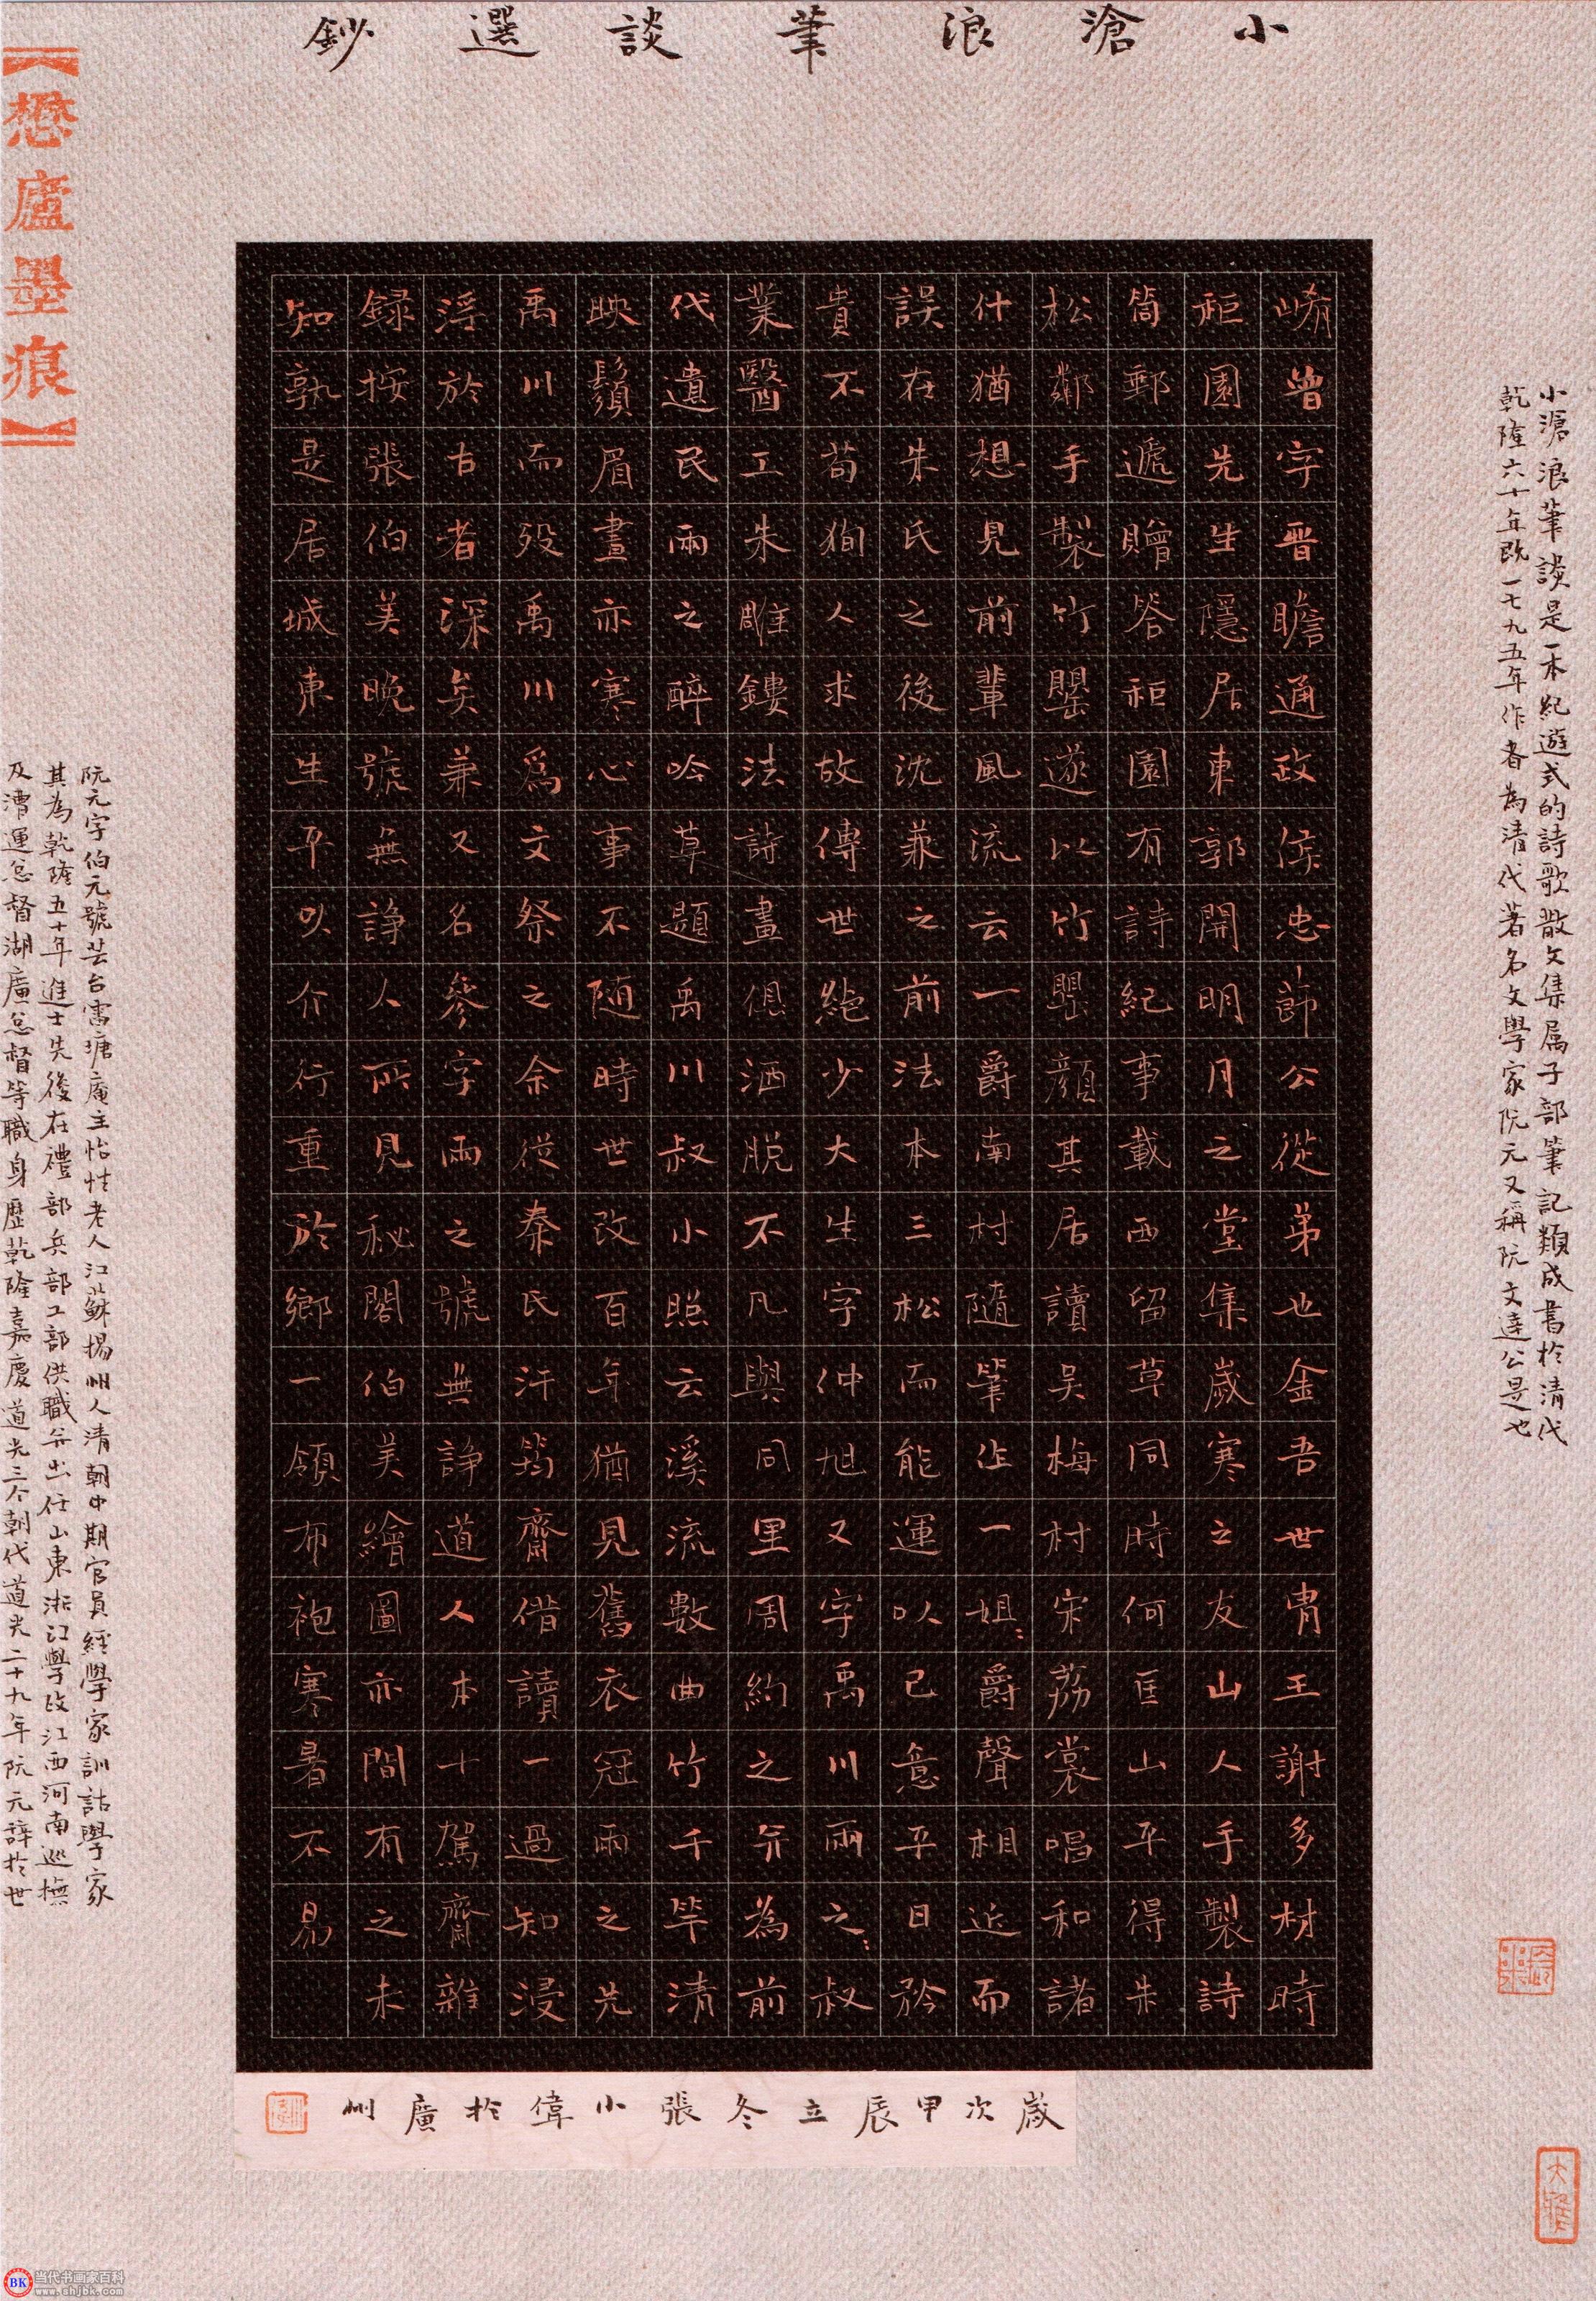 小滄浪筆談選鈔
小滄浪筆談是一本紀遊式的詩歌散文集属子部筆記類成書於清代
乾隆六十年既一七九五年作者為清代著名文學家阮元又稱阮文達公是也
崤曾字晋瞻通政侯忠節公從弟也金吾世胄王謝多材時
秬園先生隱居東郭開明月之堂集歲寒之友山人手製詩
筒郵遞贈答秬園有詩紀事載西留草同時何匡山平得朱
松鄰手製竹罌遂以竹罌顏其居讀吳梅村宋荔裳唱和諸
什猶想見前輩風流云一爵南村隨筆作一姐:爵聲相近而
誤在朱氏之後沈兼之前法本三松而能運以己意平日矜
貴不苟狥人求故傳世絶少大生字仲旭又字禹川兩之:叔
業醫工朱雕鏤法詩畫俱洒脱不凡與同里周約之弁為前
代遺民兩之醉吟草題禹川叔小照云溪流數曲竹千竿清
映鬚眉畫亦寒心事不随時世改百年猶見舊衣冠兩之先
禹川而殁禹川爲文祭之余從秦氏汗筠齋借讀一過知浸
浮於古者深矣兼又名參字兩之號無諍道人本十駕齋雜
録按張伯美晚號無諍人所見秘閣伯美繪圖亦間有之未
知孰是居城東生平以介行重於鄉一領布袍寒暑不易
歲次甲辰立冬張小偉於廣州
阮元字伯元號芸台雷塘庵主怡性老人江蘇揚州人清朝中期官員經學家訓詁學家
其為乾隆五十年進士先後在禮部兵部工部供職并出任山東浙江學政江西河南巡撫
及漕運总督湖廣总督等職身歷乾隆嘉慶道光三个朝代道光二十九年阮元辞於世
【懋廬墨痕】
大雅
BK 当代书画家百科
www.shjbk.com